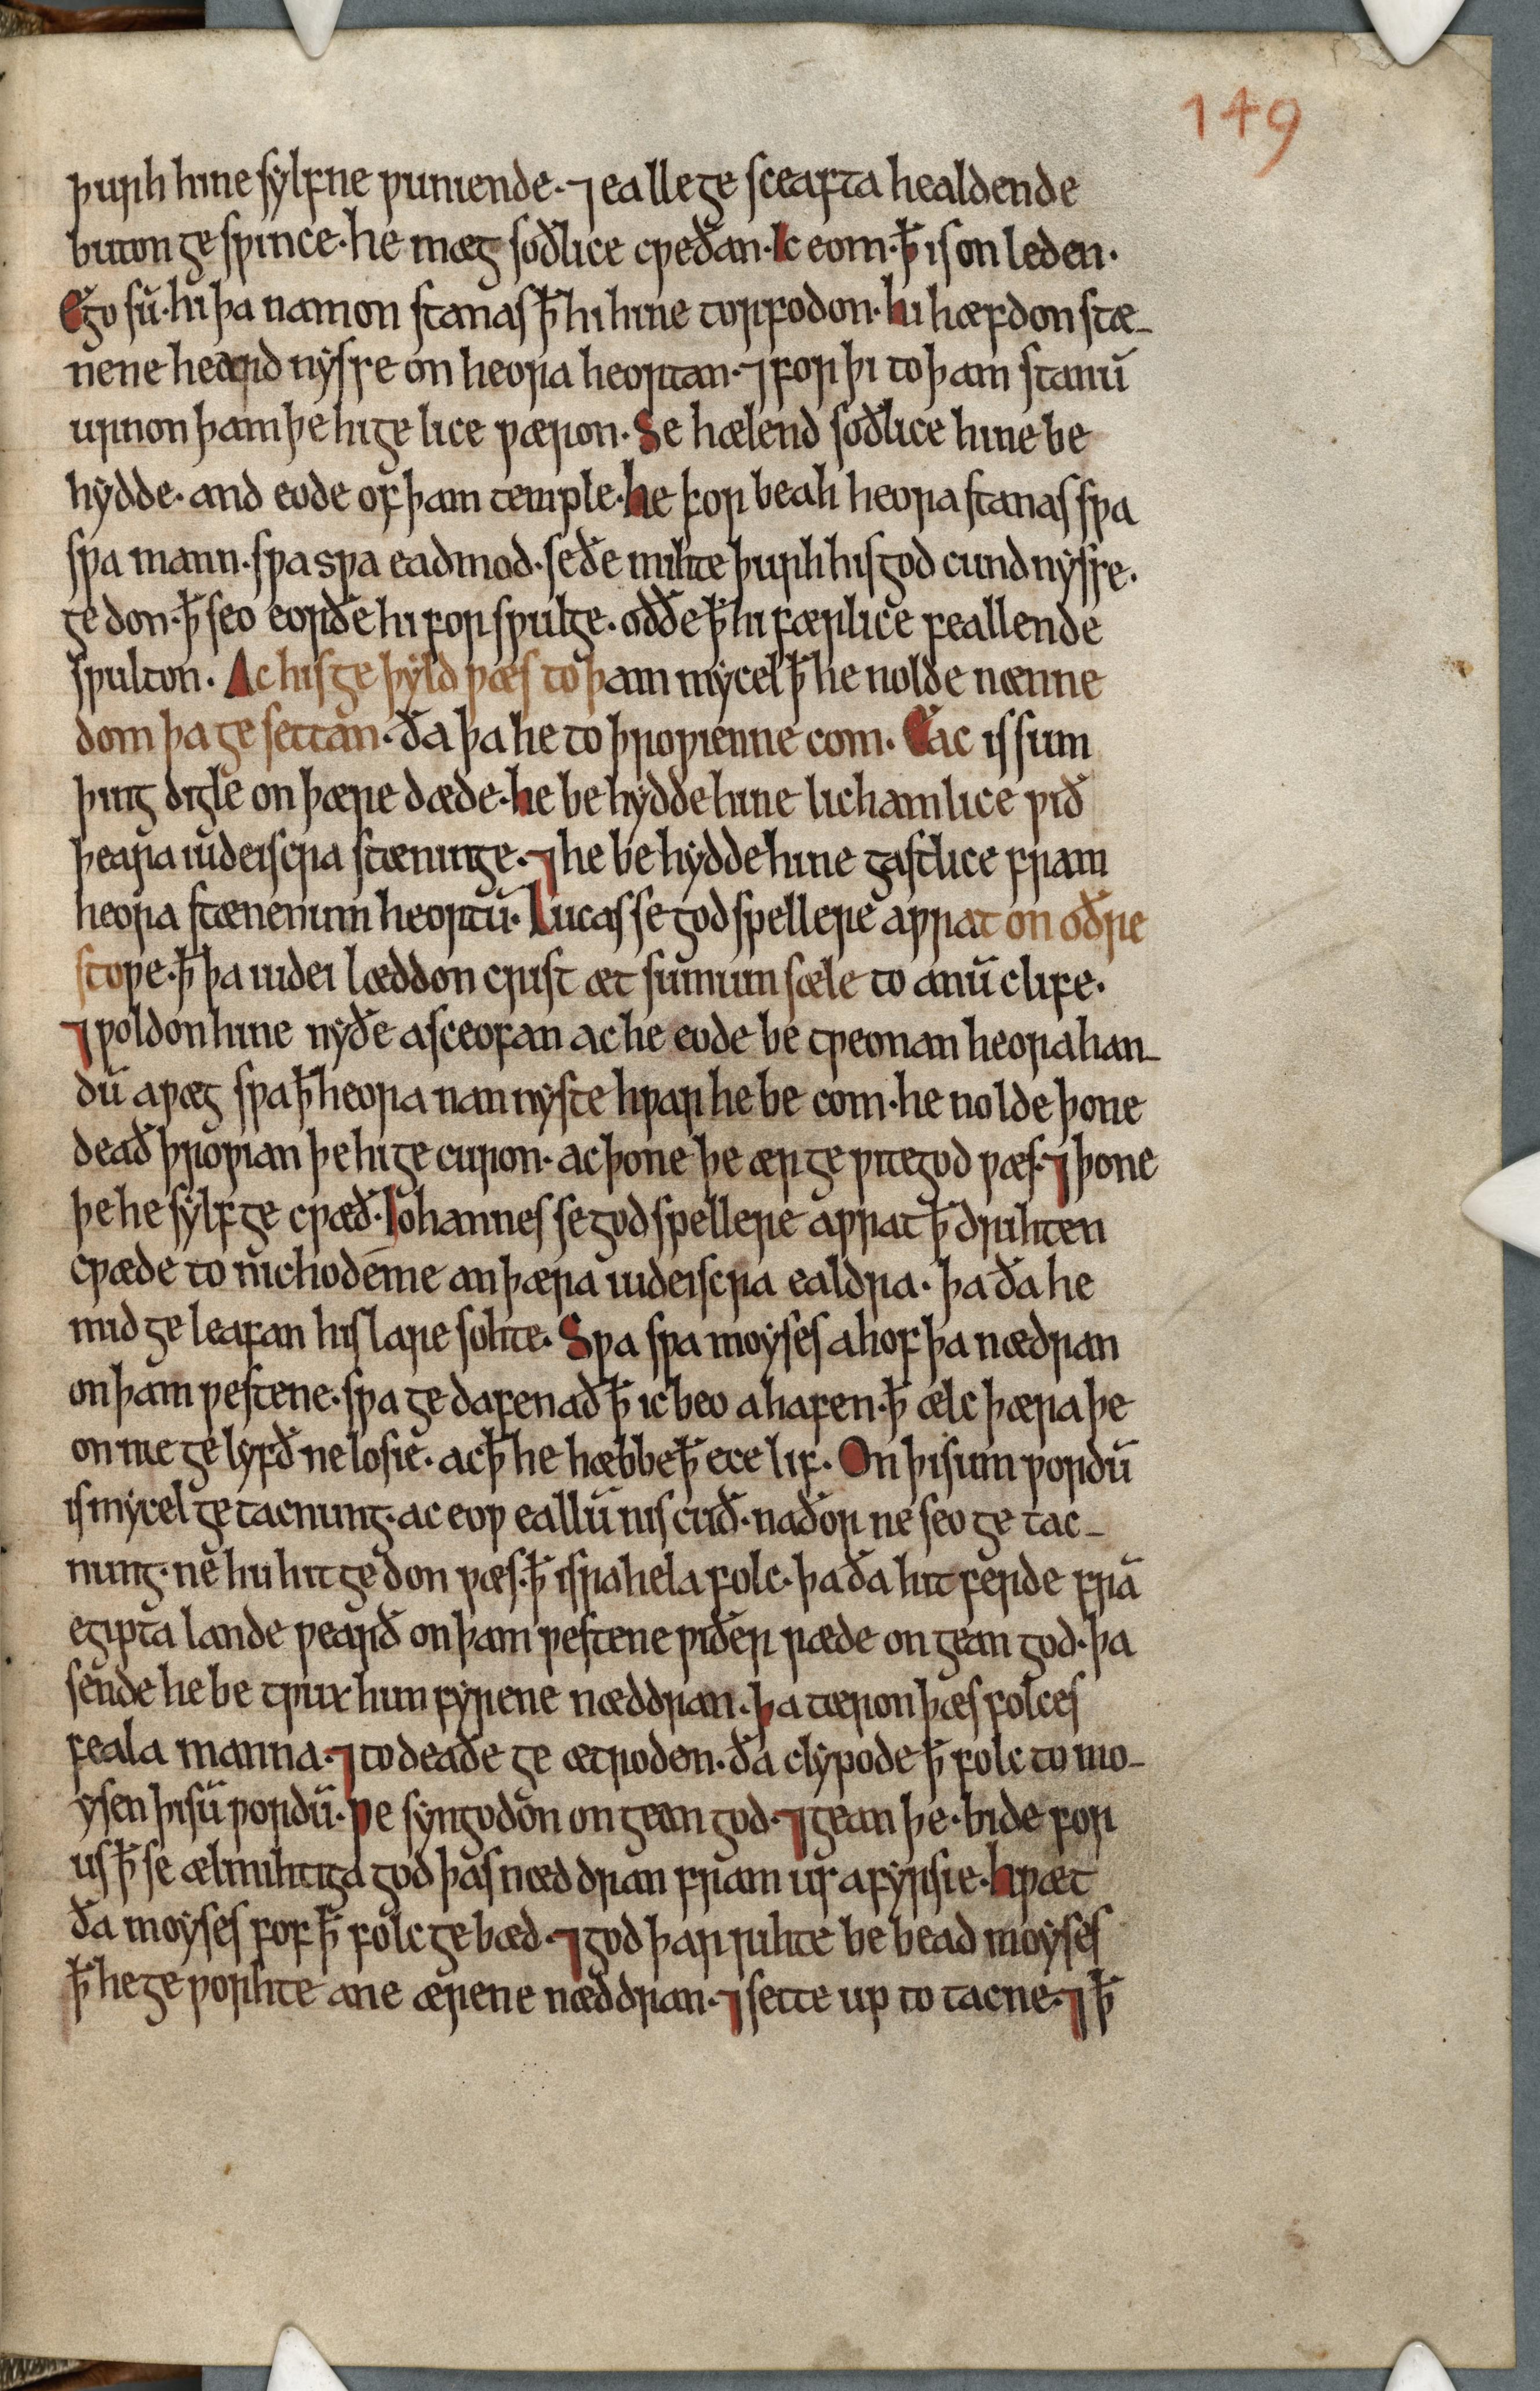 149
þurh hine sylfne ƿuniende· ⁊ ealle ge sceafta healdende
buton ge sƿince· he mæg soðlice cƿeðan· Ic eom· ꝥ is on leden·
Ego sū· hi þa namon stanas ꝥ hi hine torfodon· hi hæfdon stæ-
nene heardnysse on heora heortan· ⁊ for þi to þam stanū
urnon þam þe hi ge lice ƿæron· Se hælend soðlice hine be
hydde· and eode of þam temple· he forbeah heora stanas sƿa
sƿa mann· sƿa sƿa eadmod· seðe mihte þurh his god cundnysse·
ge don· ꝥ seo eorðe hi for sƿulge· oððe ꝥ hi færlice feallende
sƿulton· Ac his ge þyld ƿæs to þam mycel ꝥ he nolde nænne
dom þa ge settan· ða þa he to þroƿienne com· Eac is sum
þing digle on þære dæde· he be hydde hine lichamlice ƿið
þeara iudeiscra stæninge· ⁊ he be hydde hine gastlice fram
heora stænenum heortū· Lucas se god spellere aƿrat on oðre
stoƿe· ꝥ þa iudei læddon crist æt sumum sæle to anū clife·
⁊ ƿoldon hine nyðe asceofan ac he eode be tƿeonan heora han-
dū aƿæg sƿa ꝥ heora nan nyste hƿar he be com· he nolde þone
deað þroƿian þe hi ge curon· ac þone þe ær ge ƿitegod ƿæs· ⁊ þone
þe he sylf ge cƿæð· Iohannes se god spellere aƿrat ꝥ drihten
cƿæde to nichodeme an þæra iudeiscra ealdra· þa ða he
mid ge leafan his lare sohte· Sƿa sƿa moyses ahof þa nædran
on þam ƿestene· sƿa ge dafenað ꝥ ic beo ahafen· ꝥ ælc þæra þe
on me ge lyfð ne losie· ac ꝥ he hæbbe ꝥ ece lif· On þisum ƿordū
is mycel ge tacnung· ac eoƿ eallū nis cuð· naðor ne seo ge tac-
nung· ne hu hit ge don ƿæs· ꝥ israhela folc· þa ða hit ferde frā
egipta lande ƿearð on þam ƿestene ƿiðer ræde on gean god· þa
sende he be tƿux him fyrene næddran· þa tæron þæs folces
feala manna· ⁊ to deaðe ge ætrodon· ða clypode ꝥ folc to mo-
ysen þisū ƿordū· ƿe syngodon on gean god· ⁊ gean þe· bide for
us ꝥ se ælmihtiga god þas næddran fram us afyrsie· hƿæt
ða moyses for ꝥ folc ge bæd· ⁊ god þar rihte be bead moyses
ꝥ he ge ƿorhte ane ærene næddran· ⁊ sette up to tacne· ⁊ ꝥ